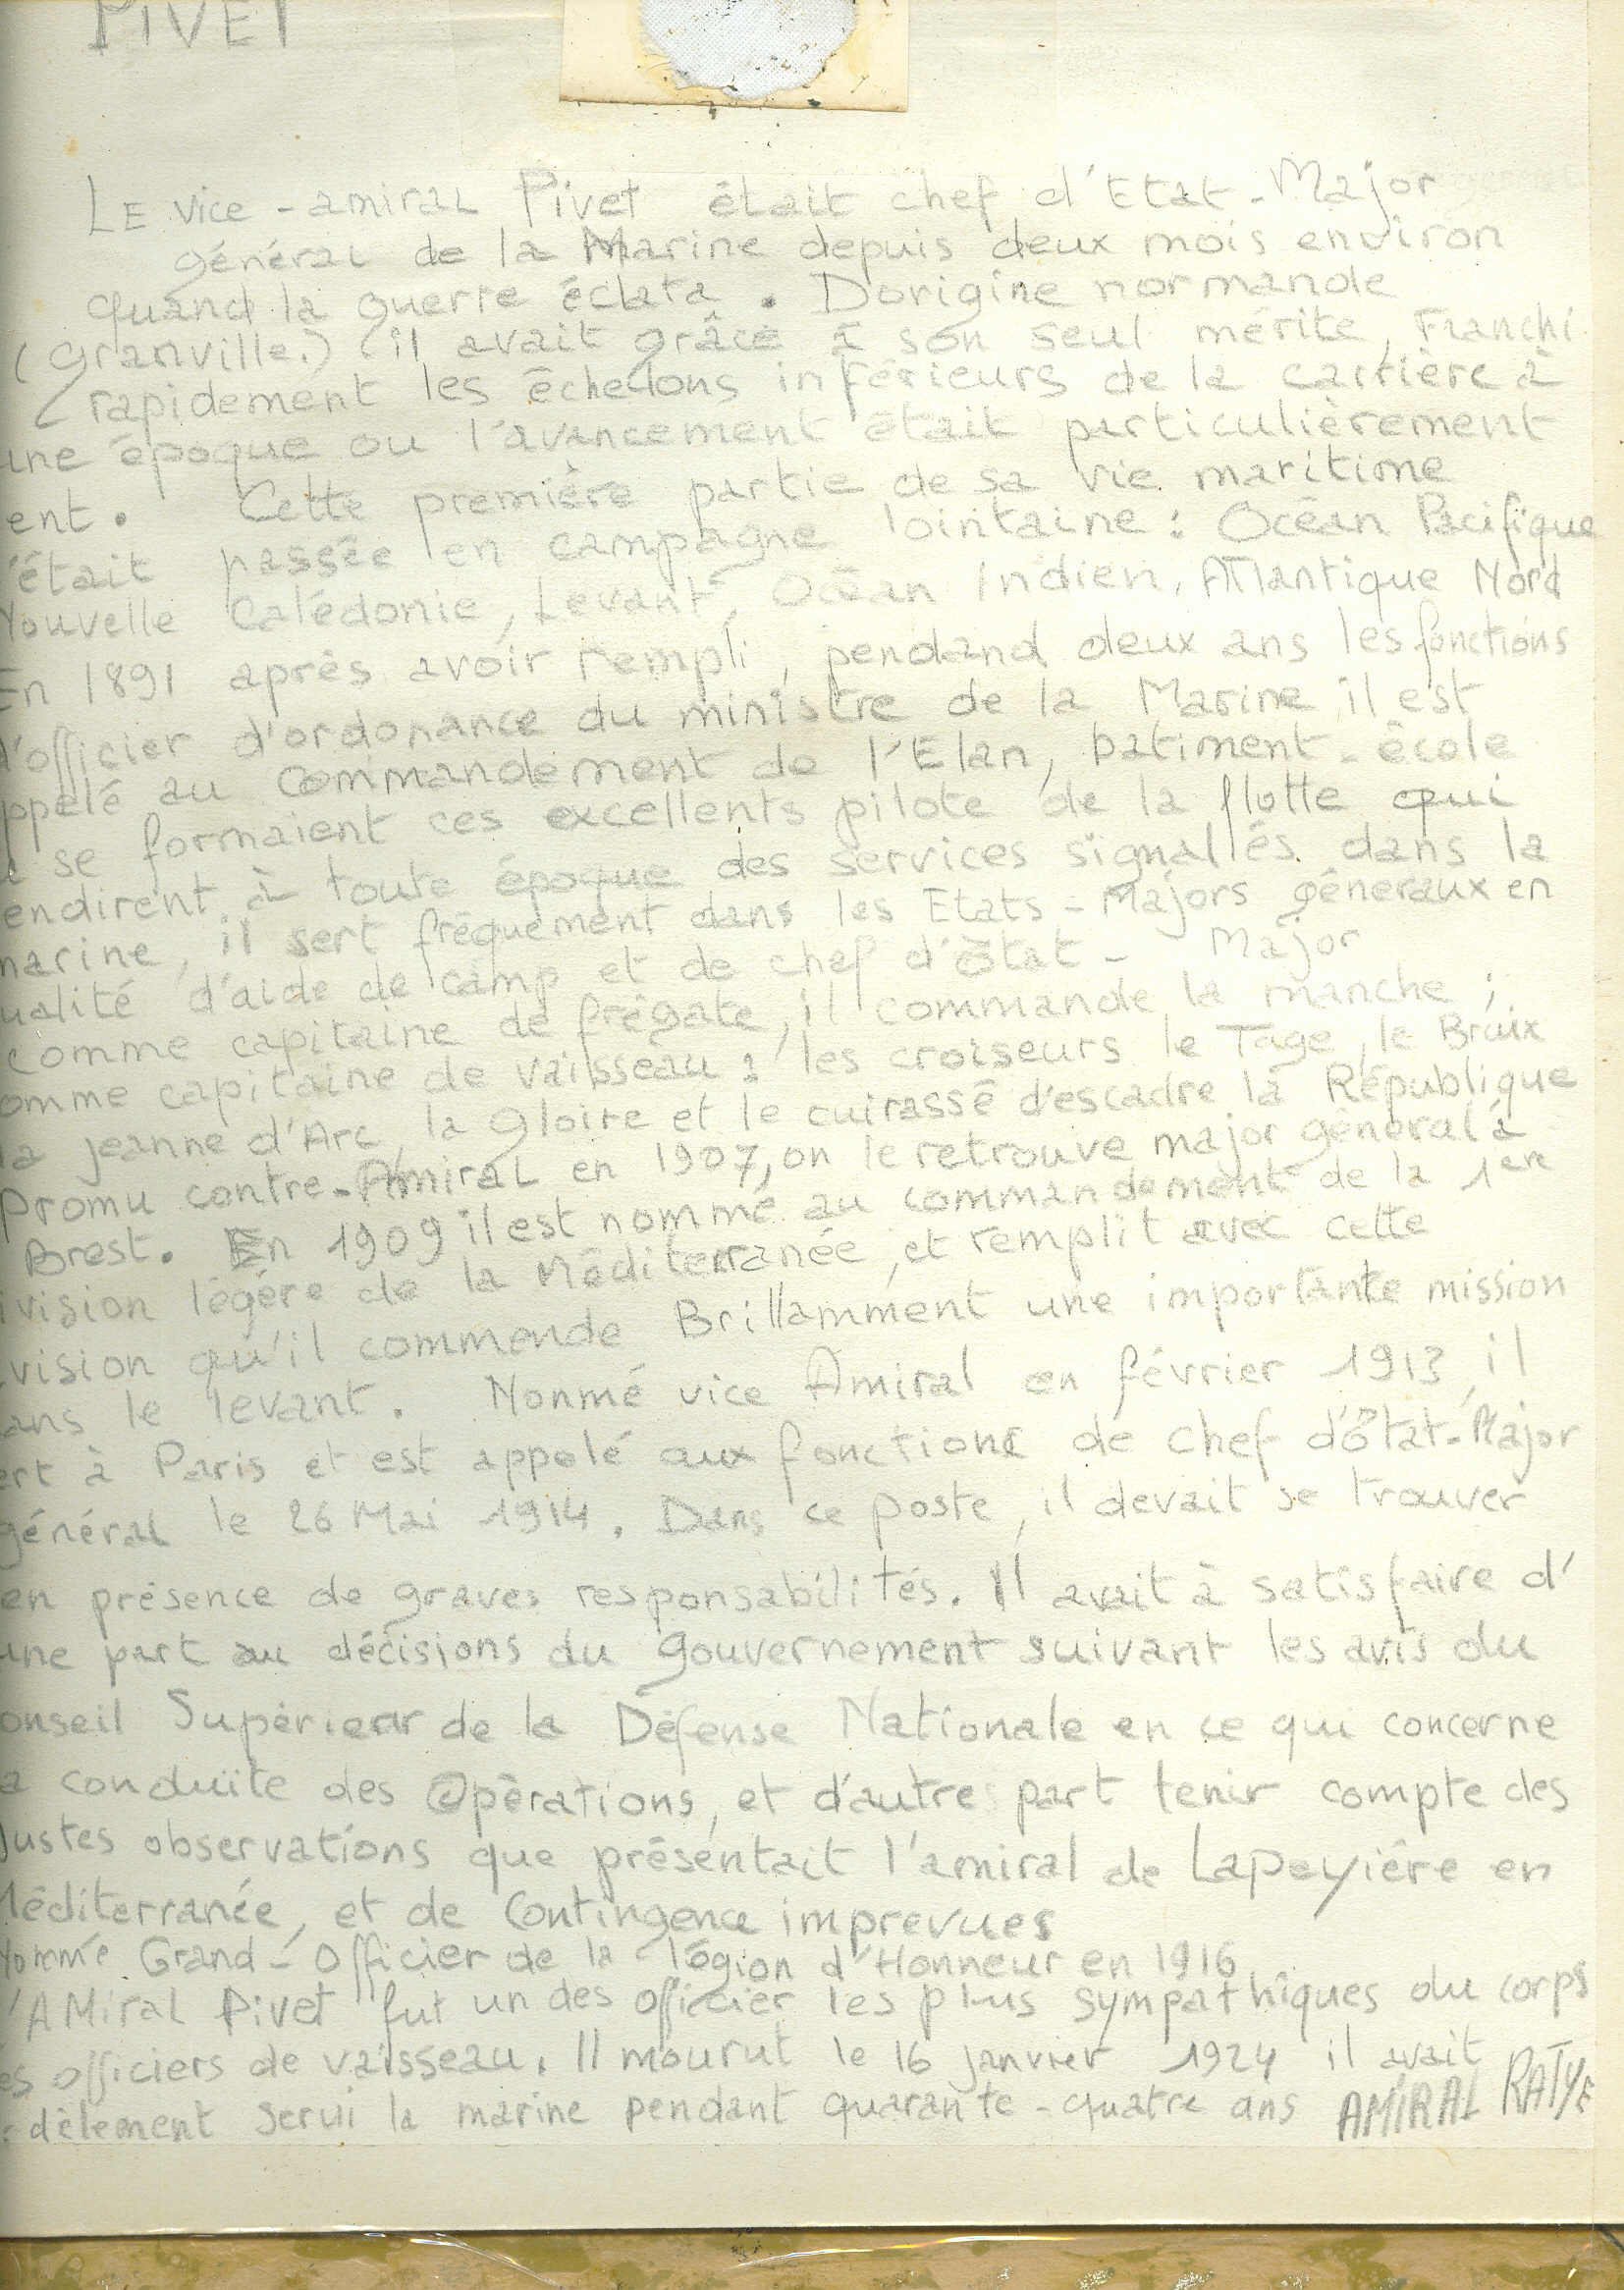 PIVET
LE vice - amiral Pivet était chef d'Etat - Major
général de la Marine depuis deux mois environ
quand la guerre éclata. D'origine normande
(Granville.) il avait grâce à son seul mérite, Franchi
rapidement les êchelons inférieurs de la carrière à
une époque ou l'avancement était particulièrement
ent. Cette première partie de sa vie maritime
'était passée en campagne lointaine : Océan Pacifique
Nouvelle Calédonie, Levant, Océan Indien, Atlantique Nord
En 1891 après avoir rempli, pendand deux ans les fonctions
d'officier d'ordonance du ministre de la Marine il est
ppelé au Commandement de l'Elan, batiment - êcole
u se formaient ces excellents pilote de la flotte qui
endirent à toute époque des services signallés dans la
marine, il sert fréquement dans les Etats - Majors gêneraux en
ualité d'aide de camp et de chef d'êtat - Major
Comme capitaine de frégate, il commande la manche ;
omme capitaine de vaisseau : les croiseurs le Tage, le Bruix
la Jeanne d'Arc, la gloire et le cuirassé d'escadre la République
Promu contre-Amiral en 1907, on le retrouve major général à
Brest. En 1909 il est nommé au commandement de la 1ere
ivision légére de la Méditerranée, et remplit avec cette
ivision qu'il commende Brillamment une importante mission
ans le levant. Nonmé vice Amiral en février 1913, il
ert à Paris et est appelé aux fonctions de chef d'êtat-Major
général le 26 Mai 1914. Dans ce poste, il devait se trouver
en présence de graves responsabilités. Il avait à satisfaire d'
une part au décisions du gouvernement suivant les avis du
onseil Supérieur de la Défense Nationale en ce qui concerne
a conduite des Opérations, et d'autre part tenir compte des
Justes observations que présentait l'amiral de Lapeyiére en
Méditerranée, et de Contingence imprevues
Nommé Grand - Officier de la légion d'Honneur en 1916
l'AMiral Pivet fut un des officier les plus sympathiques du corps
es officiers de vaisseau. Il mourut le 16 janvier 1924 il avait
dèlement servi la marine pendant quarante - quatre ans AMIRAL RATYE